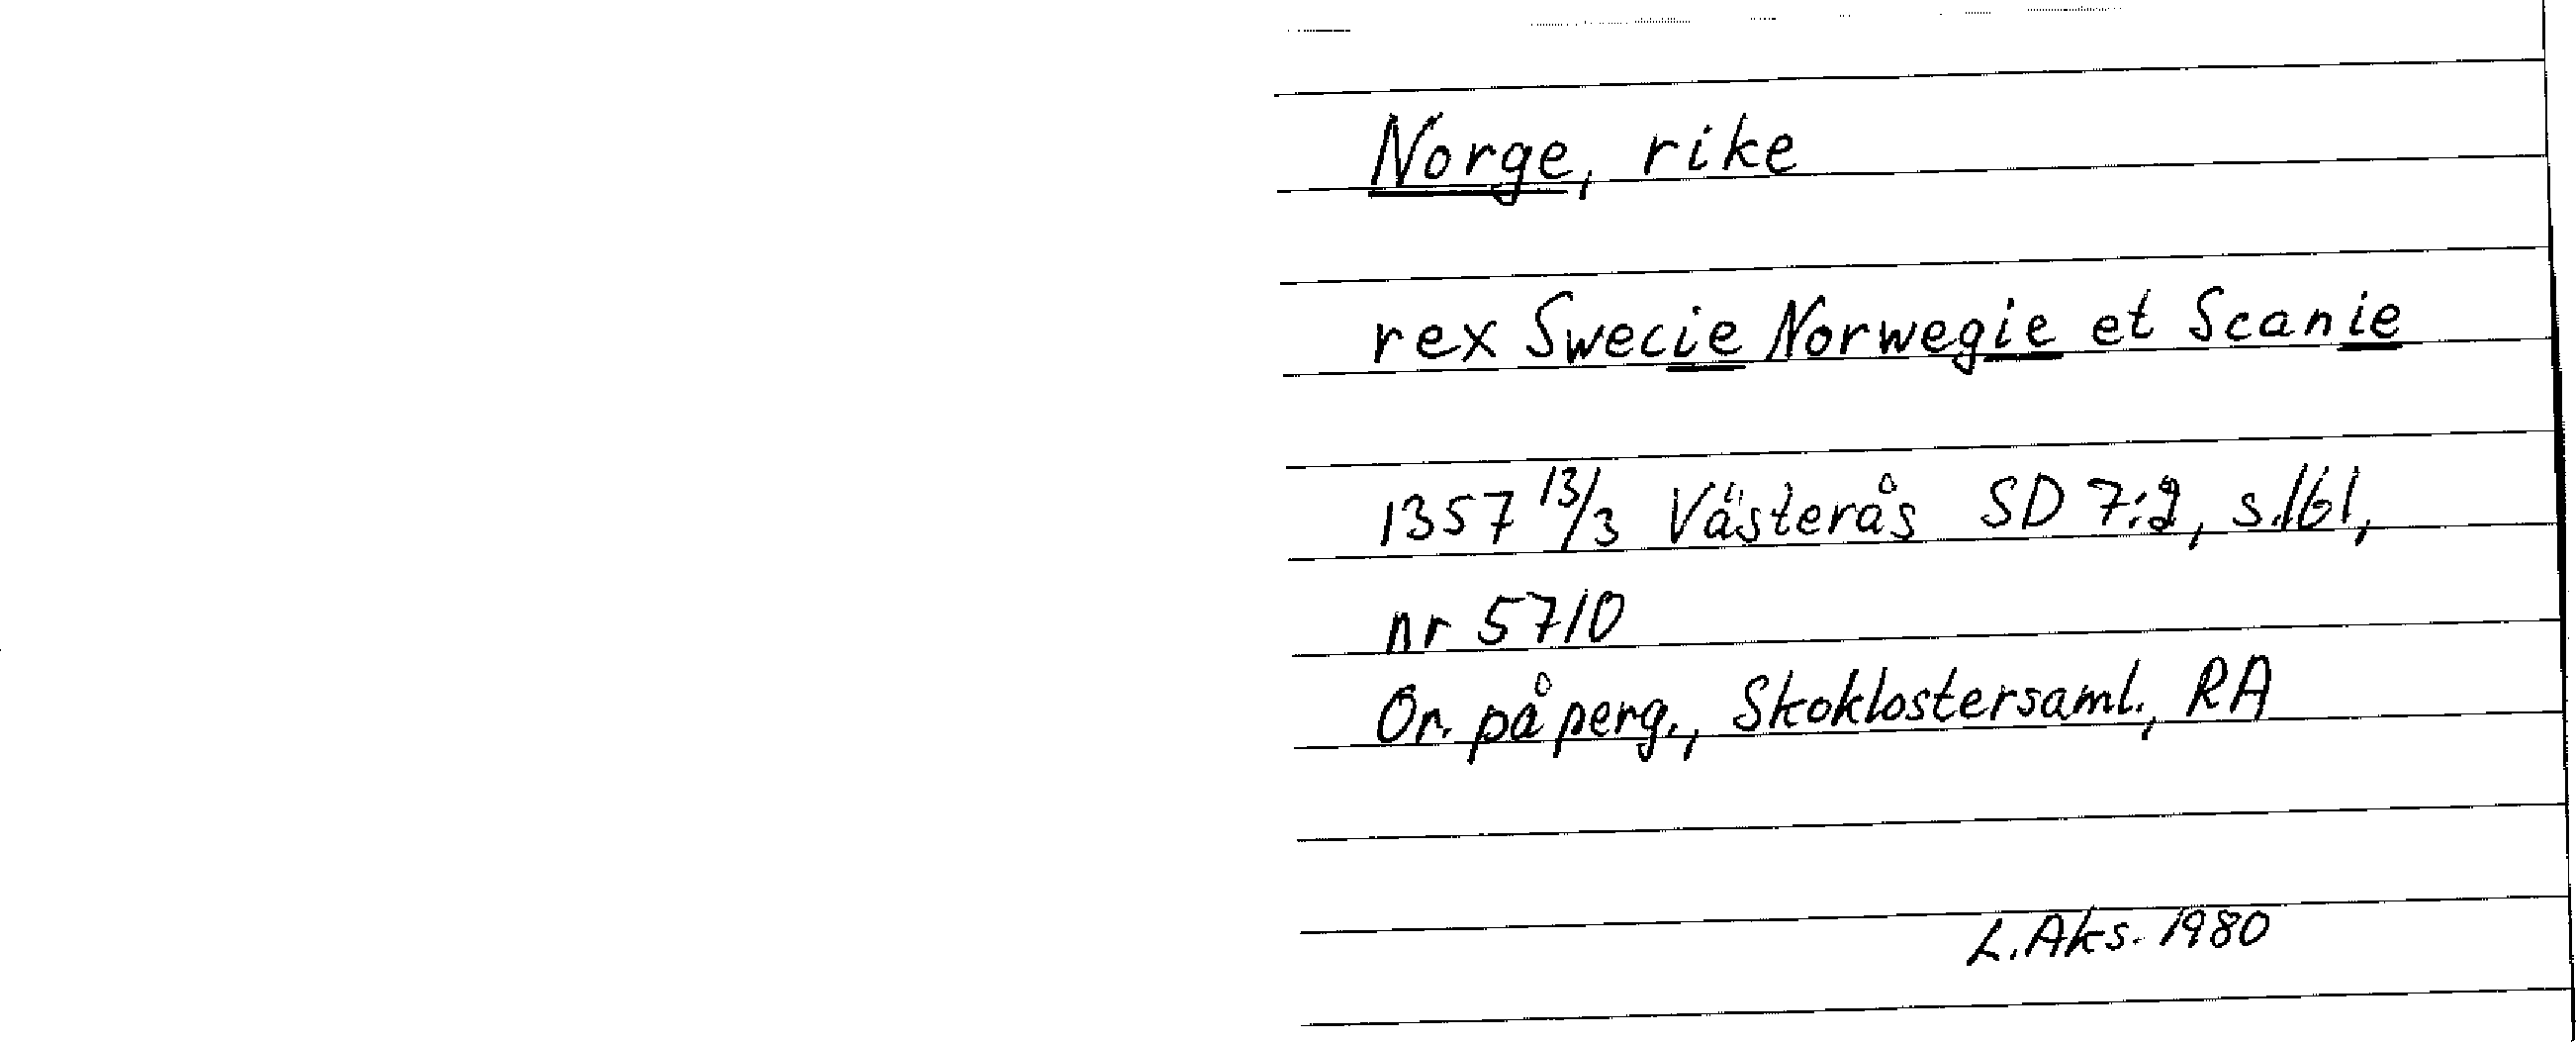 Norge, rike
rex Swecie Norwegie et Scanie
1357 13/3 Västerås SD 7:2, s.161,
nr 5710
Or. på perg., Skoklostersaml., RA
L. Aks. 1980